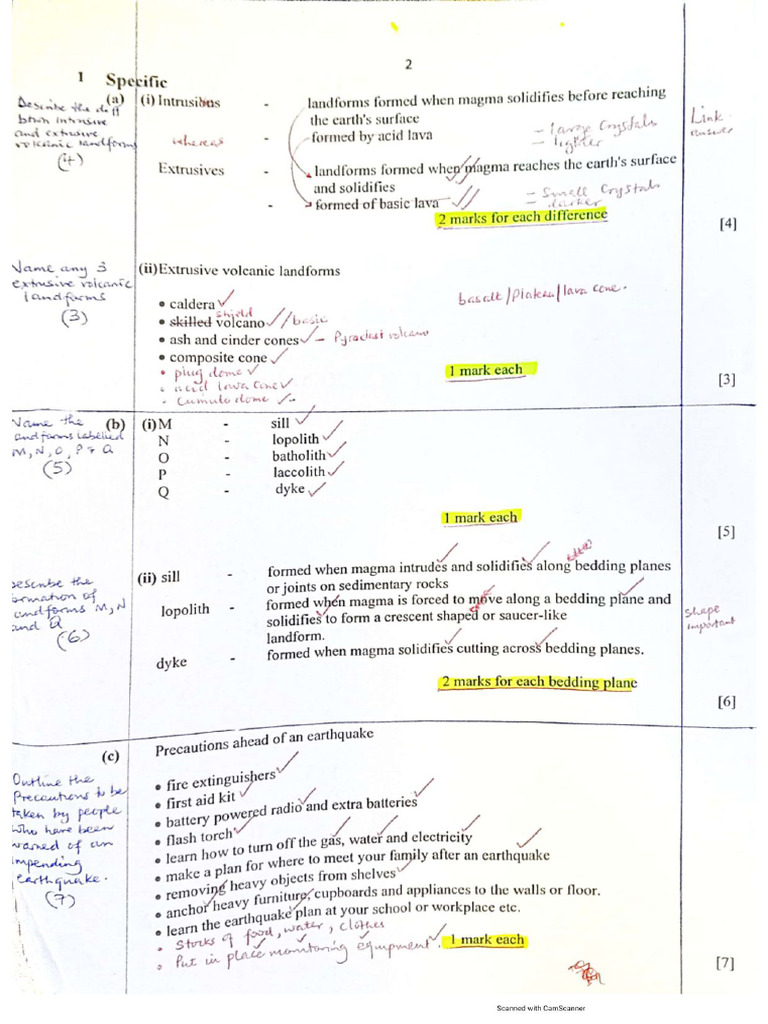 2
1 Specific
Describe the diff
btwn intrusive
and extrusive
volcanic landforms
(4)
(a) (i) Intrusives - landforms formed when magma solidifies before reaching
the earth's surface
whereas - formed by acid lava
- large crystals
- lighter
Link
answer
Extrusives - landforms formed when magma reaches the earth's surface
and solidifies
- formed of basic lava
- Small crystals
- darker
2 marks for each difference
[4]
Name any 3
extrusive volcanic
landforms
(3)
(ii) Extrusive volcanic landforms
• caldera
shield
• skilled volcano //basic
basalt/Plateau/lava cone.
• ash and cinder cones - Pyroclast volcano
• composite cone
• plug dome
• acid lava cone
• cumulo dome
1 mark each
[3]
Name the
landforms labelled
M, N, O, P & Q
(5)
(b) (i) M - sill
N - lopolith
O - batholith
P - laccolith
Q - dyke
1 mark each
[5]
Describe the
formation of
landforms M, N
and Q
(6)
(ii) sill - formed when magma intrudes and solidifies along bedding planes
or joints on sedimentary rocks
lopolith - formed when magma is forced to move along a bedding plane and
solidifies to form a crescent shaped or saucer-like
landform.
shape
important
dyke - formed when magma solidifies cutting across bedding planes.
2 marks for each bedding plane
[6]
Outline the
Precautions to be
taken by people
who have been
warned of an
impending
earthquake.
(7)
(c) Precautions ahead of an earthquake
• fire extinguishers
• first aid kit
• battery powered radio and extra batteries
• flash torch
• learn how to turn off the gas, water and electricity
• make a plan for where to meet your family after an earthquake
• removing heavy objects from shelves
• anchor heavy furniture, cupboards and appliances to the walls or floor.
• learn the earthquake plan at your school or workplace etc.
• Stocks of food, water, clothes
• Put in place monitoring equipment.
1 mark each
[7]
Scanned with CamScanner